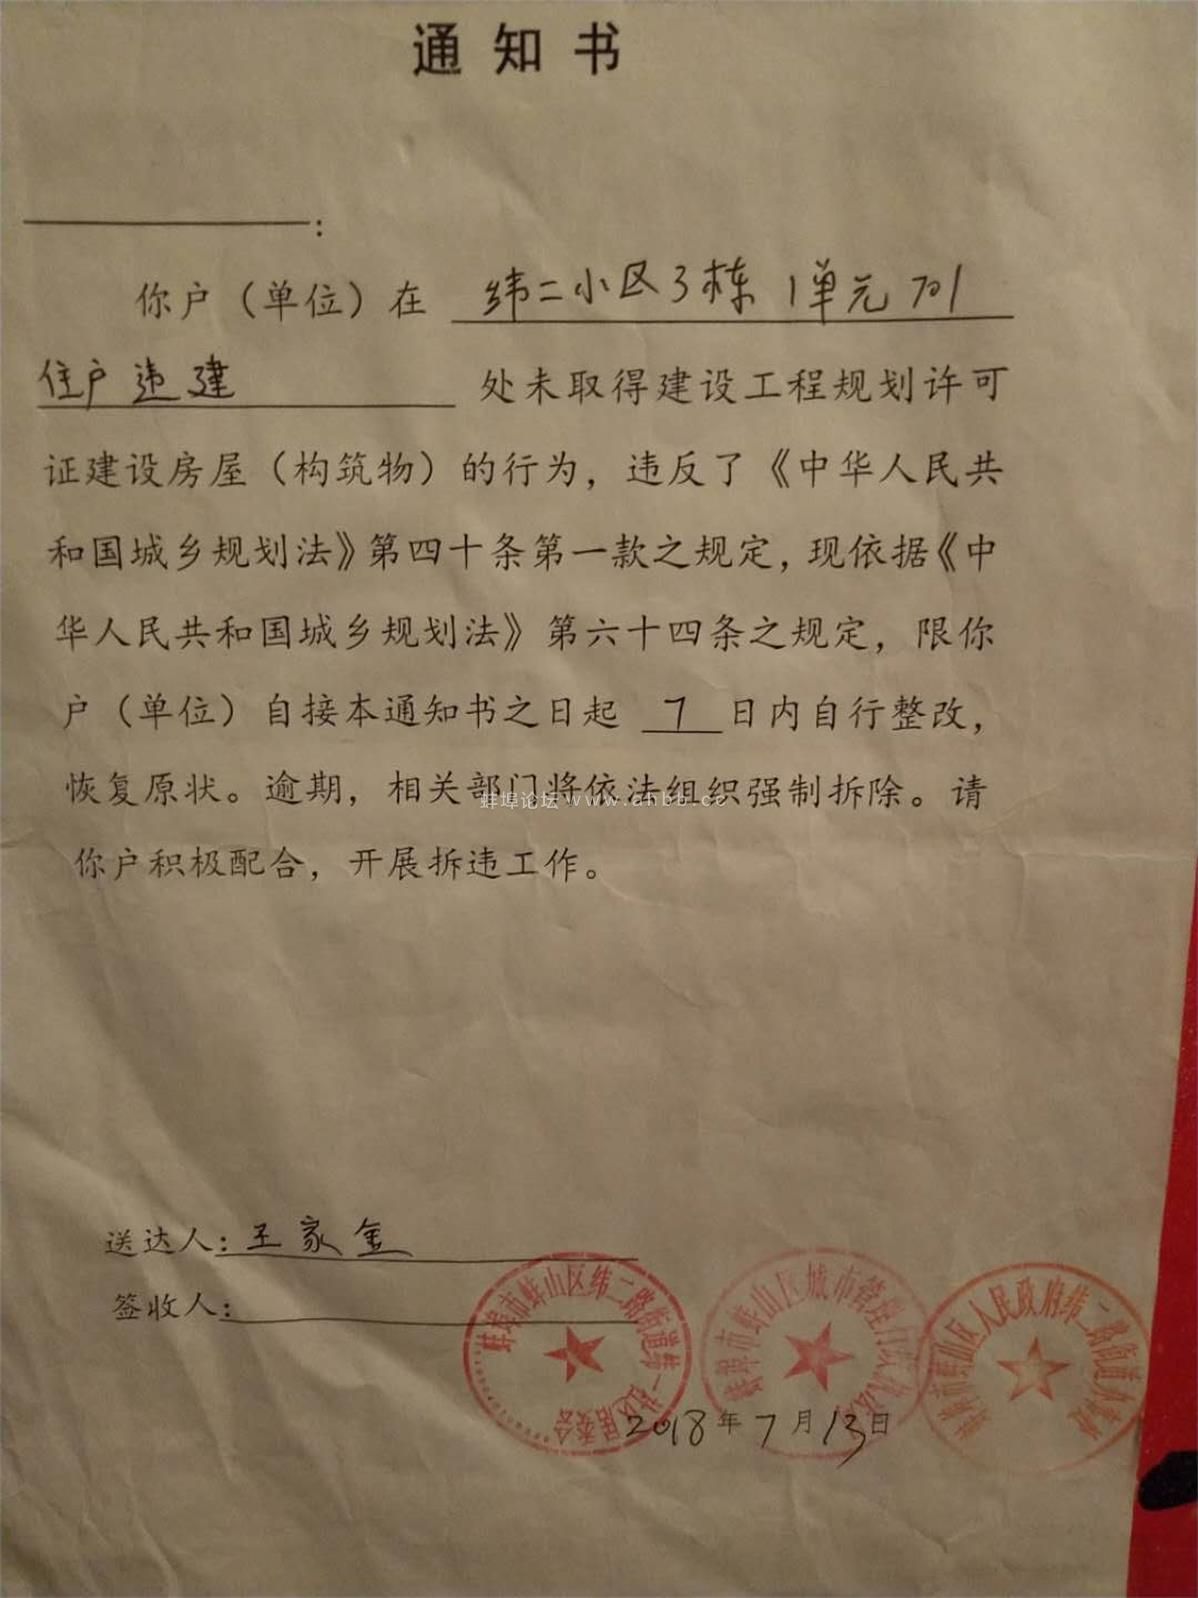 通知书
:
你户（单位）在 纬二小区3栋1单元701
住户违建 处未取得建设工程规划许可
证建设房屋（构筑物）的行为，违反了《中华人民共
和国城乡规划法》第四十条第一款之规定，现依据《中
华人民共和国城乡规划法》第六十四条之规定，限你
户（单位）自接本通知书之日起 7 日内自行整改，
恢复原状。逾期，相关部门将依法组织强制拆除。请
蚌埠论坛 www.ahbb.cc
你户积极配合，开展拆违工作。
送达人：王家金
签收人：
蚌埠市蚌山区纬二路街道纬一社区居委会
蚌埠市蚌山区城市管理行政执法
蚌埠市蚌山区人民政府纬二路街道办事处
2018年7月13日